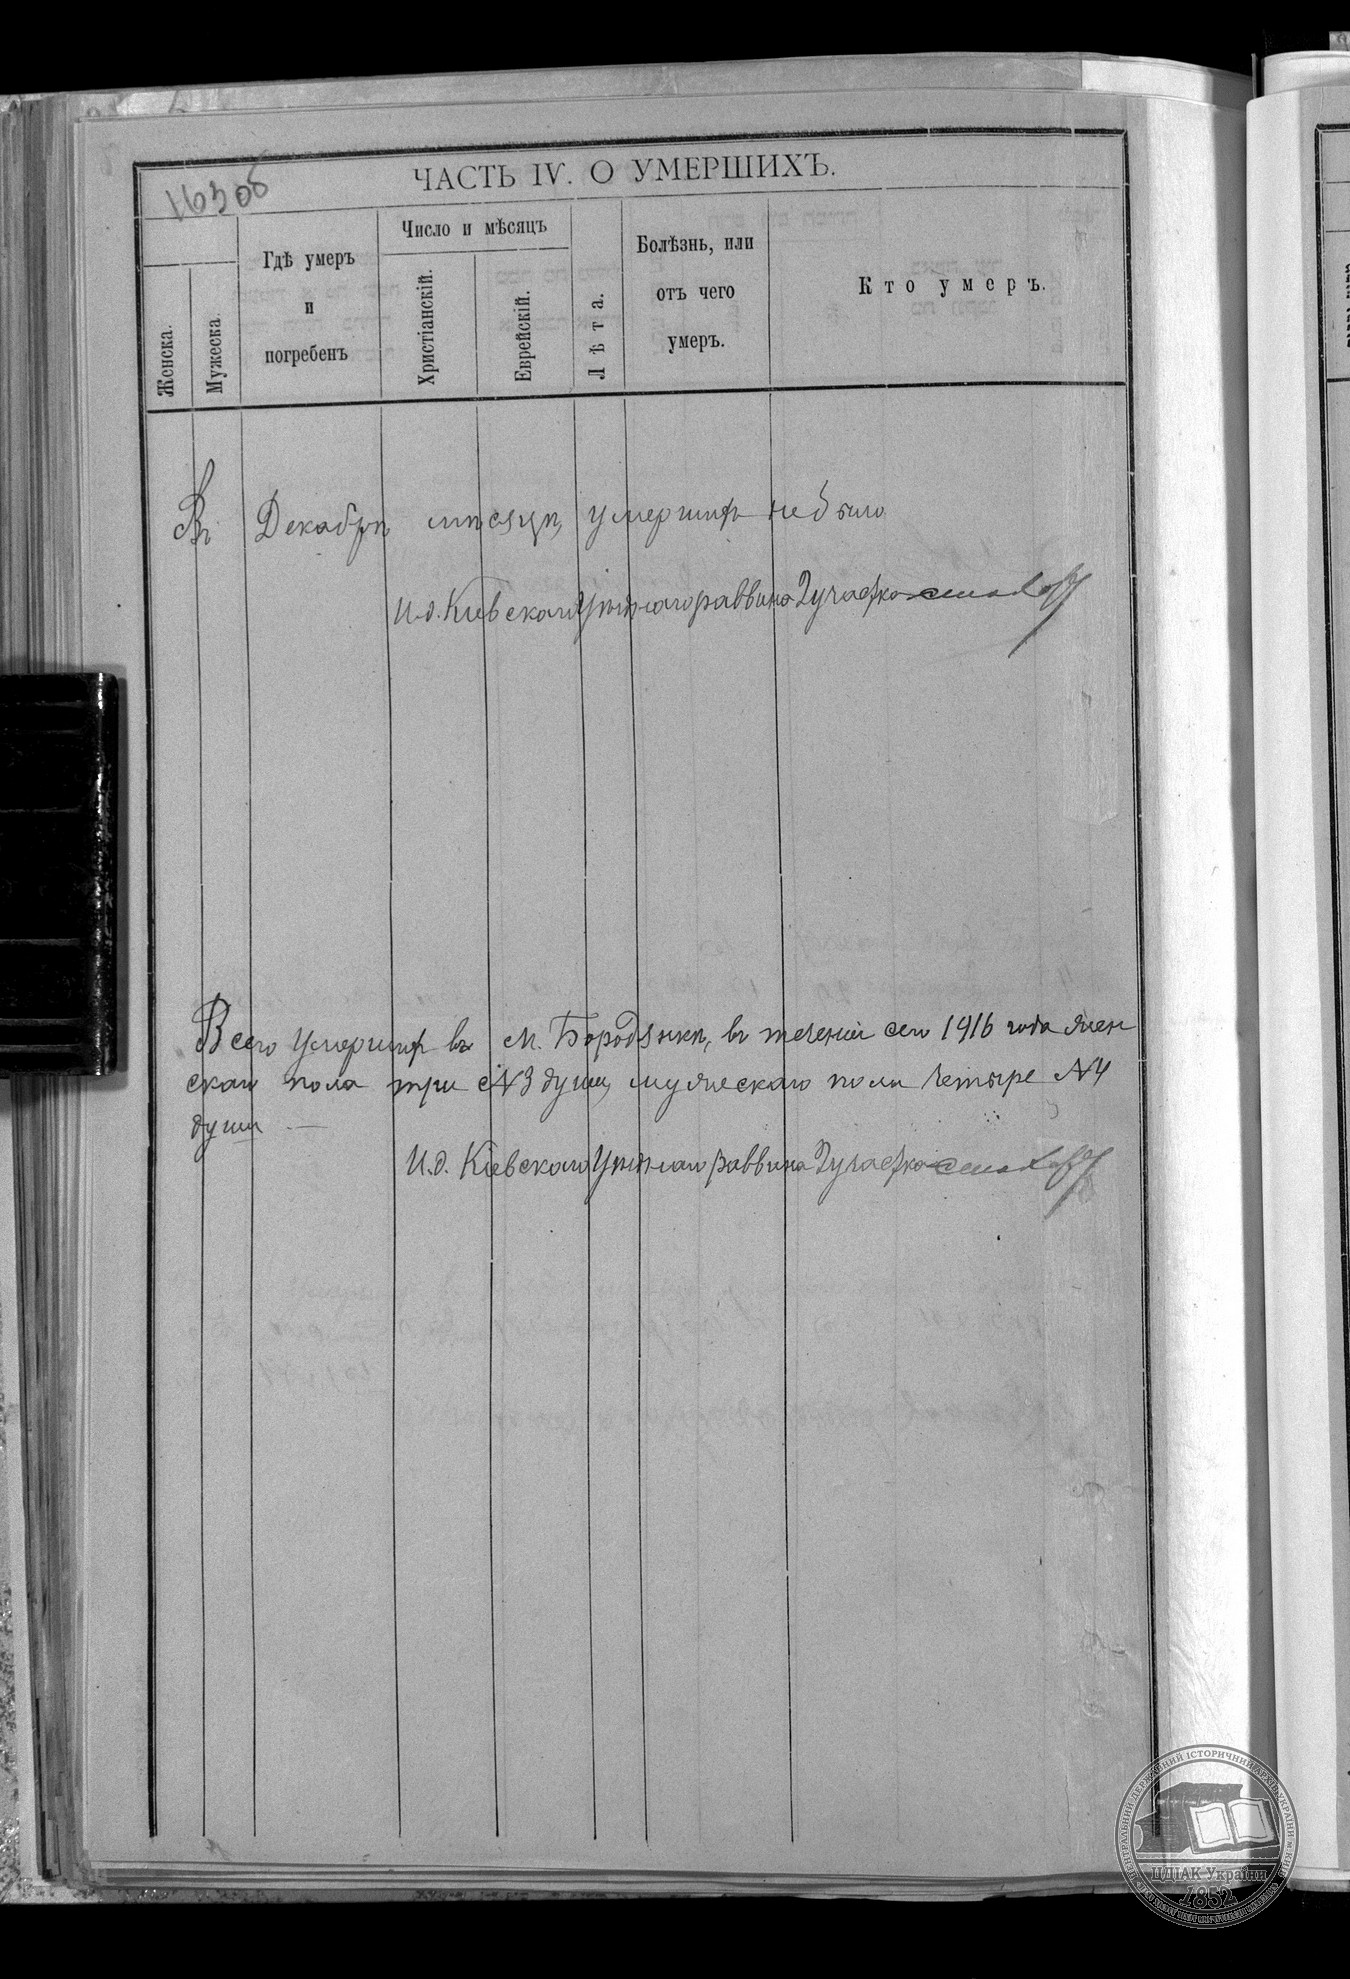 163об
ЧАСТЬ IV. О УМЕРШИХЪ.
Женска.
Мужеска.
Гдѣ умеръ
и
погребенъ
Число и мѣсяцъ
Христіанскій.
Еврейскій.
Лѣта.
Болѣзнь, или
отъ чего
умеръ.
Кто умеръ.
Въ Декабрѣ мѣсяцѣ, умершихъ не было
И.д. Кіевскаго Уѣзднаго раввина
Всего умершихъ въ м. Бородянкѣ, въ теченіи сего 1916 года жен
скаго пола три №3 души, мужескаго пола четыре №4
души —
И.д. Кіевскаго Уѣзднаго раввина
ЦЕНТРАЛЬНИЙ ДЕРЖАВНИЙ ІСТОРИЧНИЙ АРХІВ УКРАЇНИ М.КИЇВ
ЦДІАК України
1852